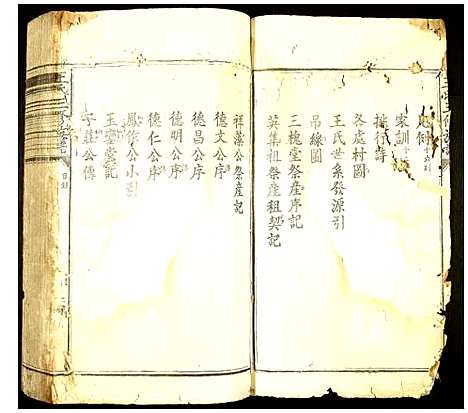 凡例
家訓
排行壽
各處村圖
王氏世系發源引
吊線圖
三槐堂祭産序記
英集祖祭産租契記
祥藻公祭産記
德文公序
德昌公序
德明公序
德仁公序
鳳作公小引
玉鑾堂記
子莊公傳
目錄